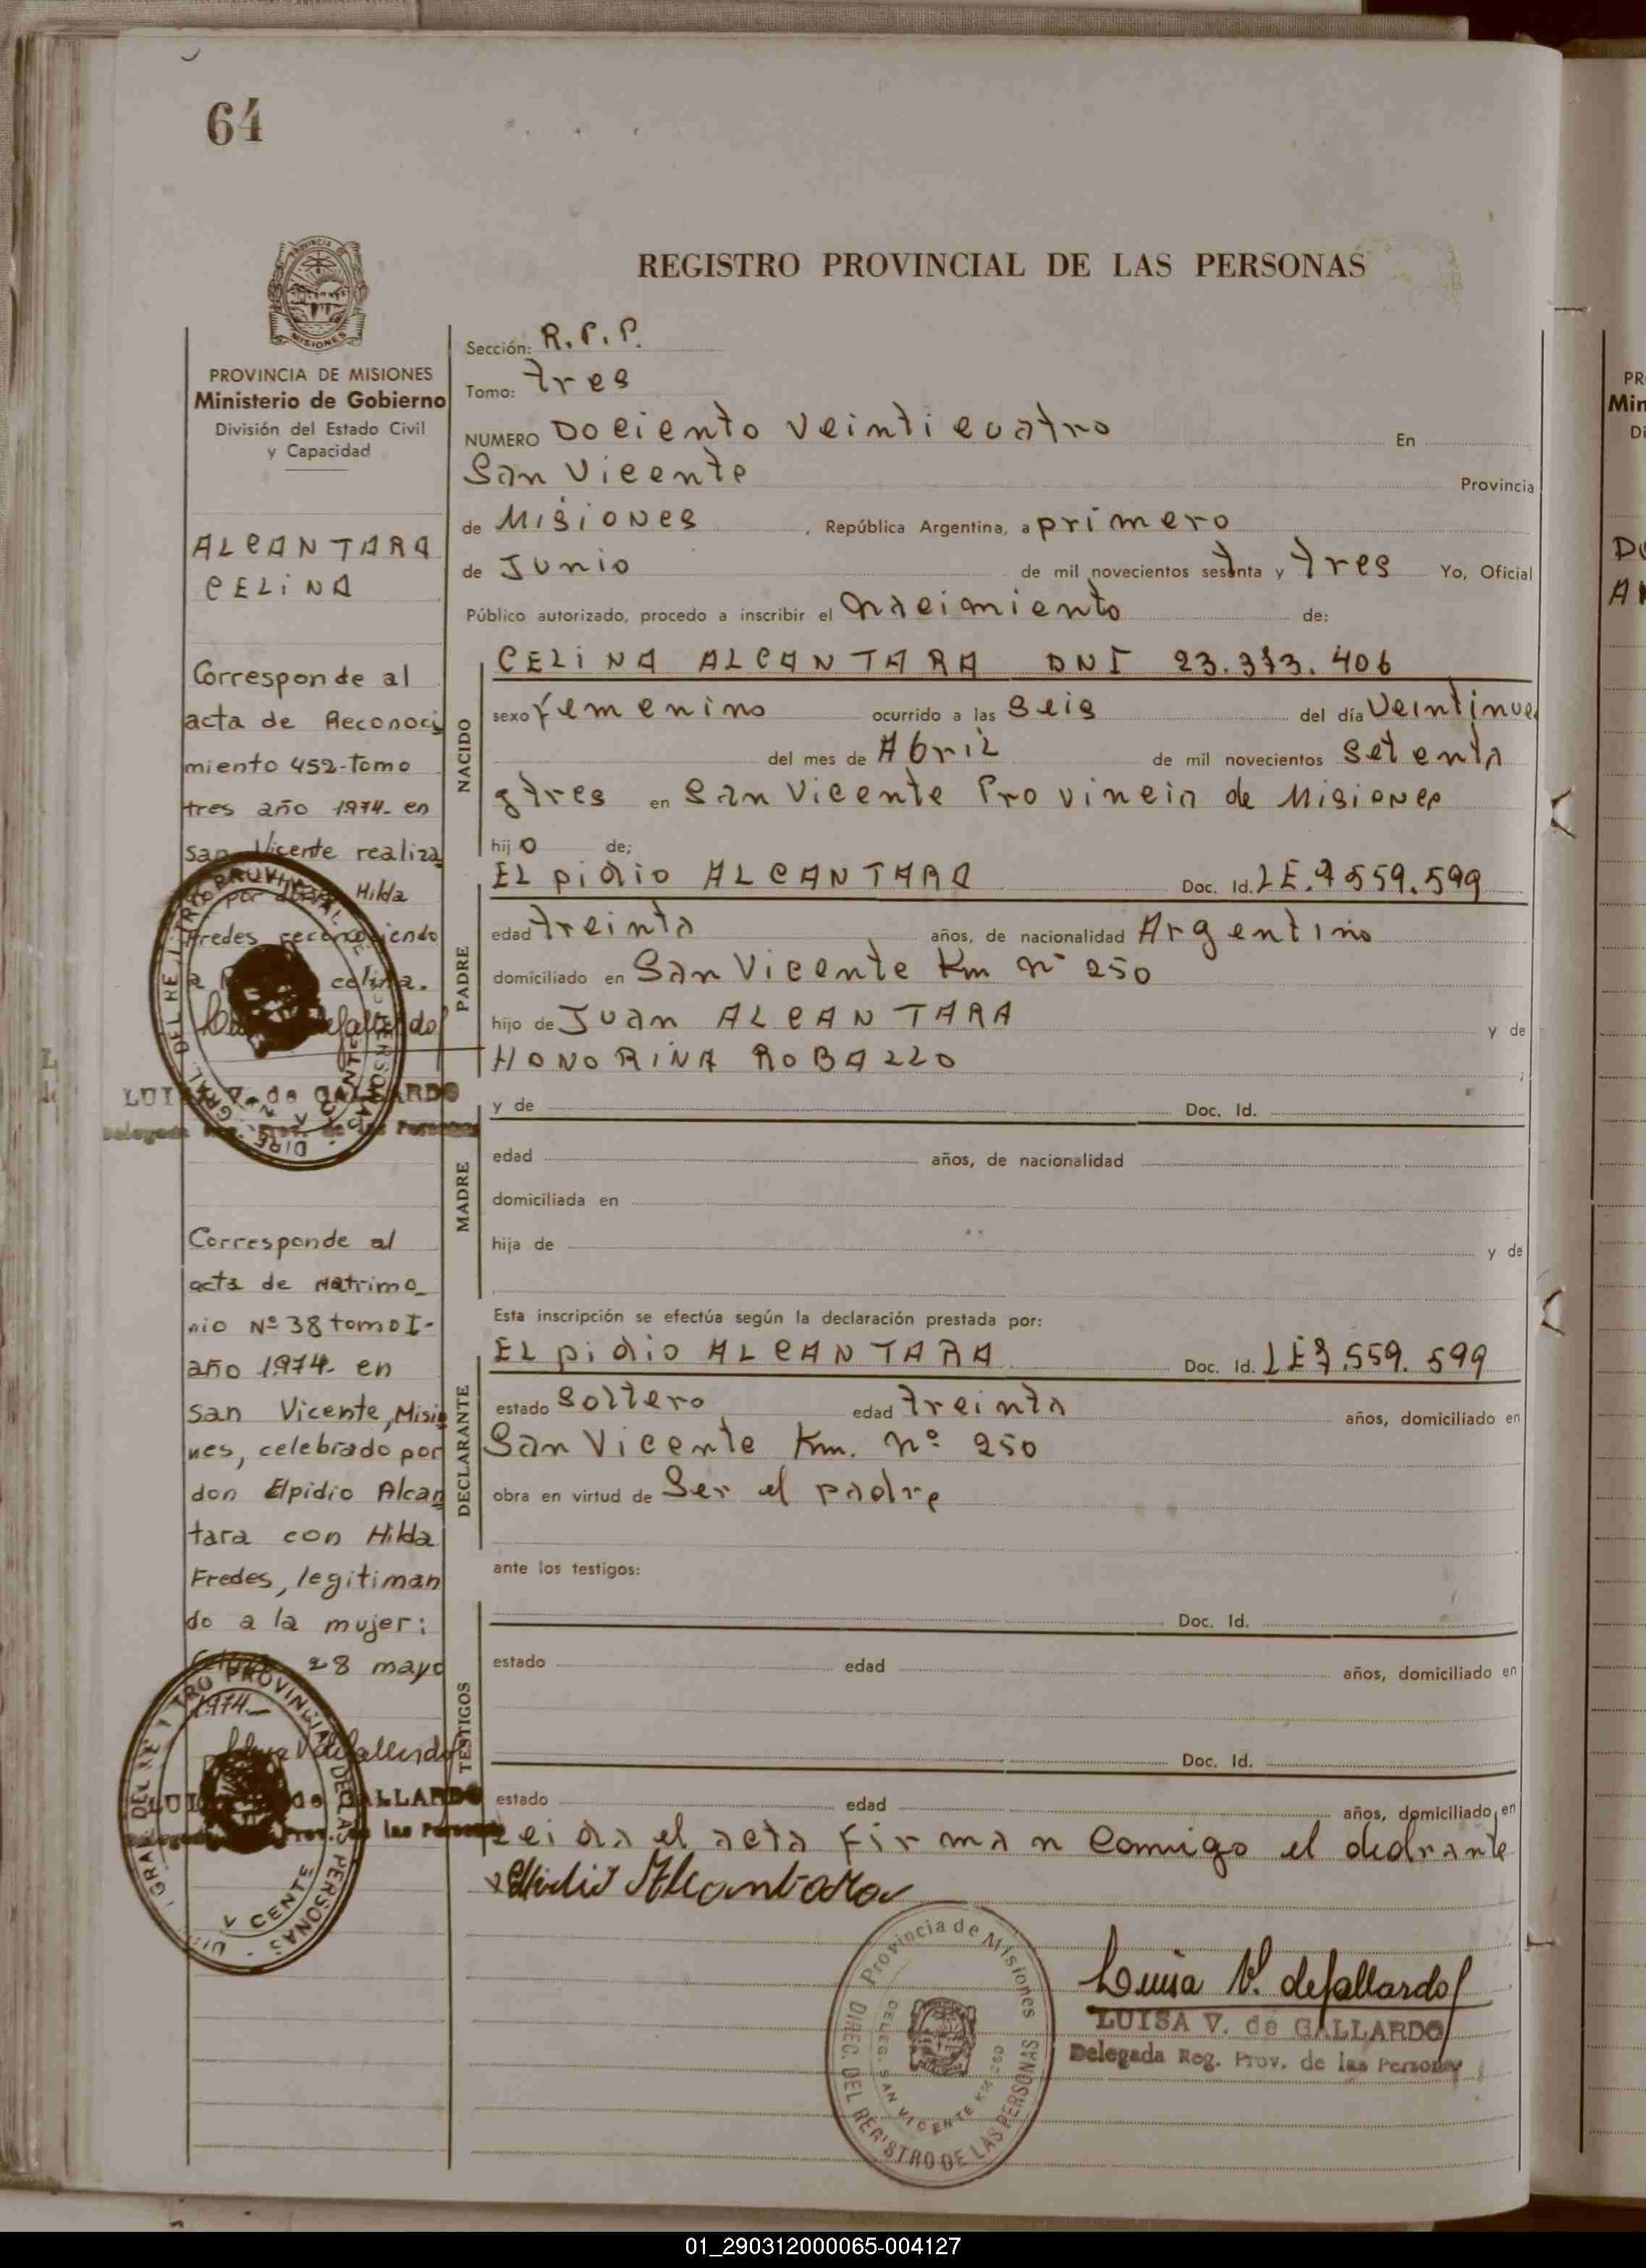 64
REGISTRO PROVINCIAL DE LAS PERSONAS
PROVINCIA DE MISIONES
Ministerio de Gobierno
División del Estado Civil
y Capacidad
ALCANTARA
CELINA
Corresponde al
acta de Reconoci
miento 452-tomo
tres año 1974- en
San Vicente realiza
por Hilda
Fredes reconociendo
a celina.
LUISA V. de GALLARDO
Delegada Reg. Prov. de las Personas
Corresponde al
acta de Matrimo_
nio Nº 38 tomo I-
año 1974- en
San Vicente, Misio
nes, celebrado por
don Elpidio Alcan
tara con Hilda
Fredes, legitiman
do a la mujer:
28 mayo
1974.-
LUISA V. de GALLARDO
Delegada Reg. Prov. de las Personas
Sección: R.P.P.
Tomo: tres
NUMERO Dociento veinticuatro En
San Vicente Provincia
de Misiones, República Argentina, a primero
de Junio de mil novecientos setenta y tres Yo, Oficial
Público autorizado, procedo a inscribir el nacimiento de:
NACIDO
CELINA ALCANTARA DNI 23.313.406
sexo femenino ocurrido a las Seis del día Veintinue
del mes de Abril de mil novecientos Setenta
y tres en San Vicente Provincia de Misiones
hijo de;
PADRE
ELpidio ALCANTARA Doc. Id. LE.7559.599
edad treinta años, de nacionalidad Argentino
domiciliado en San Vicente Km nº 250
hijo de Juan ALCANTARA y de
HONORINA ROBAZZO
MADRE
y de Doc. Id.
edad años, de nacionalidad
domiciliada en
hija de y de
Esta inscripción se efectúa según la declaración prestada por:
DECLARANTE
ELpidio ALCANTARA Doc. Id. LE7.559.599
estado Soltero edad treinta años, domiciliado en
San Vicente Km. nº 250
obra en virtud de Ser el padre
ante los testigos:
TESTIGOS
Doc. Id.
estado edad años, domiciliado en
Doc. Id.
estado edad años, domiciliado en
Leida el acta firman comigo el dedrante
Elpidio Alcantara
Provincia de Misiones
DIREC. DEL REGISTRO DE LAS PERSONAS
DELEG. SAN VICENTE KM. 250
Luisa V. de Gallardo
LUISA V. de GALLARDO
Delegada Reg. Prov. de las Personas
01_290312000065-004127